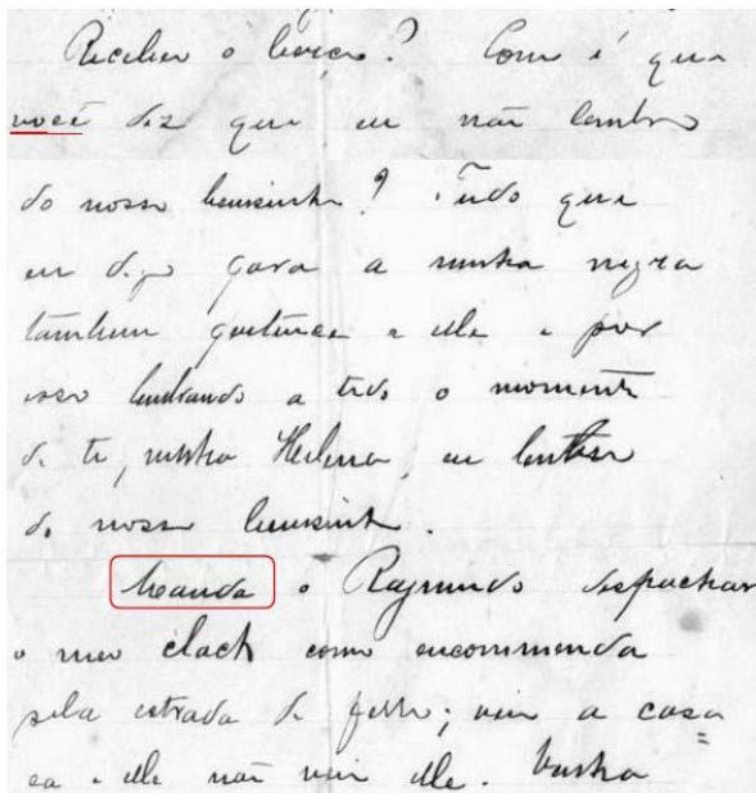 Recebeu o           ? Como é que
você diz que eu não lembro
do nosso bemsinho? Tudo que
eu digo para a minha negra
tambem pertence a elle e por
isso lembrando a todo o momento
de te, minha Helena, eu lembro
do nosso bemsinho.
Manda o Raymundo despachar
o meu clack como encommenda
pela estrada de ferro; vem a casaca
e elle não vem elle. Venha